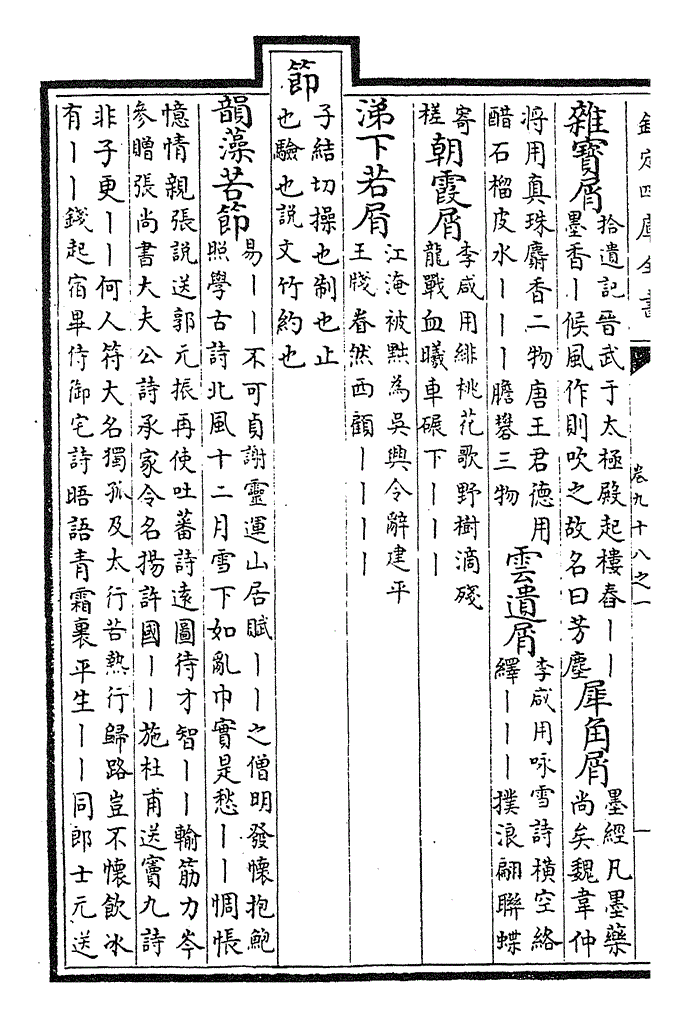 欽定四庫全書 卷九十八之一 一
雜寶屑
拾遺記晉武于太極殿起樓舂丨丨
墨香丨候風作則吹之故名曰芳塵
犀角屑
墨經凡墨藥
尚矣魏韋仲
將用真珠麝香二物唐王君德用
醋石榴皮水丨丨丨膽礬三物
雲遺屑
李咸用咏雪詩橫空絡
繹丨丨丨撲浪翩聯蝶
寄
槎
朝霞屑
李咸用緋桃花歌野樹滴殘
龍戰血曦車碾下丨丨丨
涕下若屑
江淹被黜為吳興令辭建平
王牋眷然西顧丨丨丨丨
節
子結切操也制也止
也驗也説文竹約也
韻藻苦節
易丨丨不可貞謝靈運山居賦丨丨之僧明發懷抱鮑
照學古詩北風十二月雪下如亂巾實是愁丨丨惆悵
憶情親張説送郭元振再使吐蕃詩遠圖待才智丨丨輸筋力岑
參贈張尚書大夫公詩承家令名揚許國丨丨施杜甫送竇九詩
非子更丨丨何人符大名獨孤及太行苦熱行歸路豈不懷飲冰
有丨丨錢起宿畢侍御宅詩晤語青霜裏平生丨丨同郎士元送